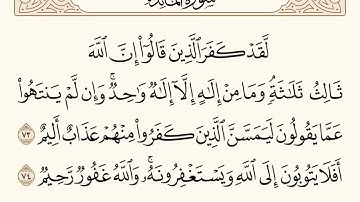 سورة المائدة
لَّقَدْ كَفَرَ ٱلَّذِينَ قَالُوٓا۟ إِنَّ ٱللَّهَ
ثَالِثُ ثَلَٰثَةٍ وَمَا مِنْ إِلَٰهٍ إِلَّآ إِلَٰهٌ وَٰحِدٌ ۚ وَإِن لَّمْ يَنتَهُوا۟
عَمَّا يَقُولُونَ لَيَمَسَّنَّ ٱلَّذِينَ كَفَرُوا۟ مِنْهُمْ عَذَابٌ أَلِيمٌ ٧٣
أَفَلَا يَتُوبُونَ إِلَى ٱللَّهِ وَيَسْتَغْفِرُونَهُۥ ۚ وَٱللَّهُ غَفُورٌ رَّحِيمٌ ٧٤